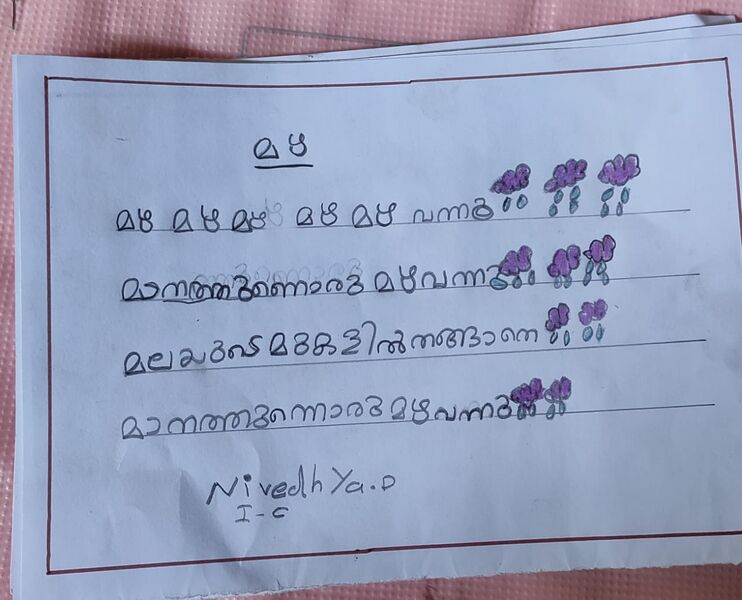 മഴ
മഴ മഴ മഴ മഴ മഴ വന്നു
മാനത്തുണൊരു മഴവന്നു
മലയുടെ മുകളിൽ തങ്ങാതെ
മാനത്തുന്നൊരു മഴവന്നു
Nivedh Ya.D
I-C